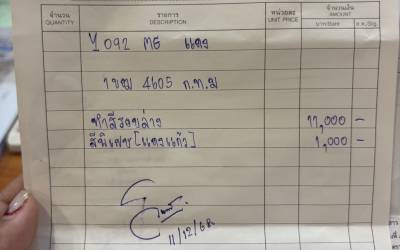 จำนวน รายการ หน่วยละ จำนวนเงิน
QUANTITY DESCRIPTION UNIT PRICE AMOUNT
บาท/Baht ส.ต./Stg.
Y 092 ME แดง
1ขม 4605 ก.ท.ม
ทำสีรอบล่าง 11,000 -
สีพิเศษ [แดงแก้ว] 1,000 -
11/12/68